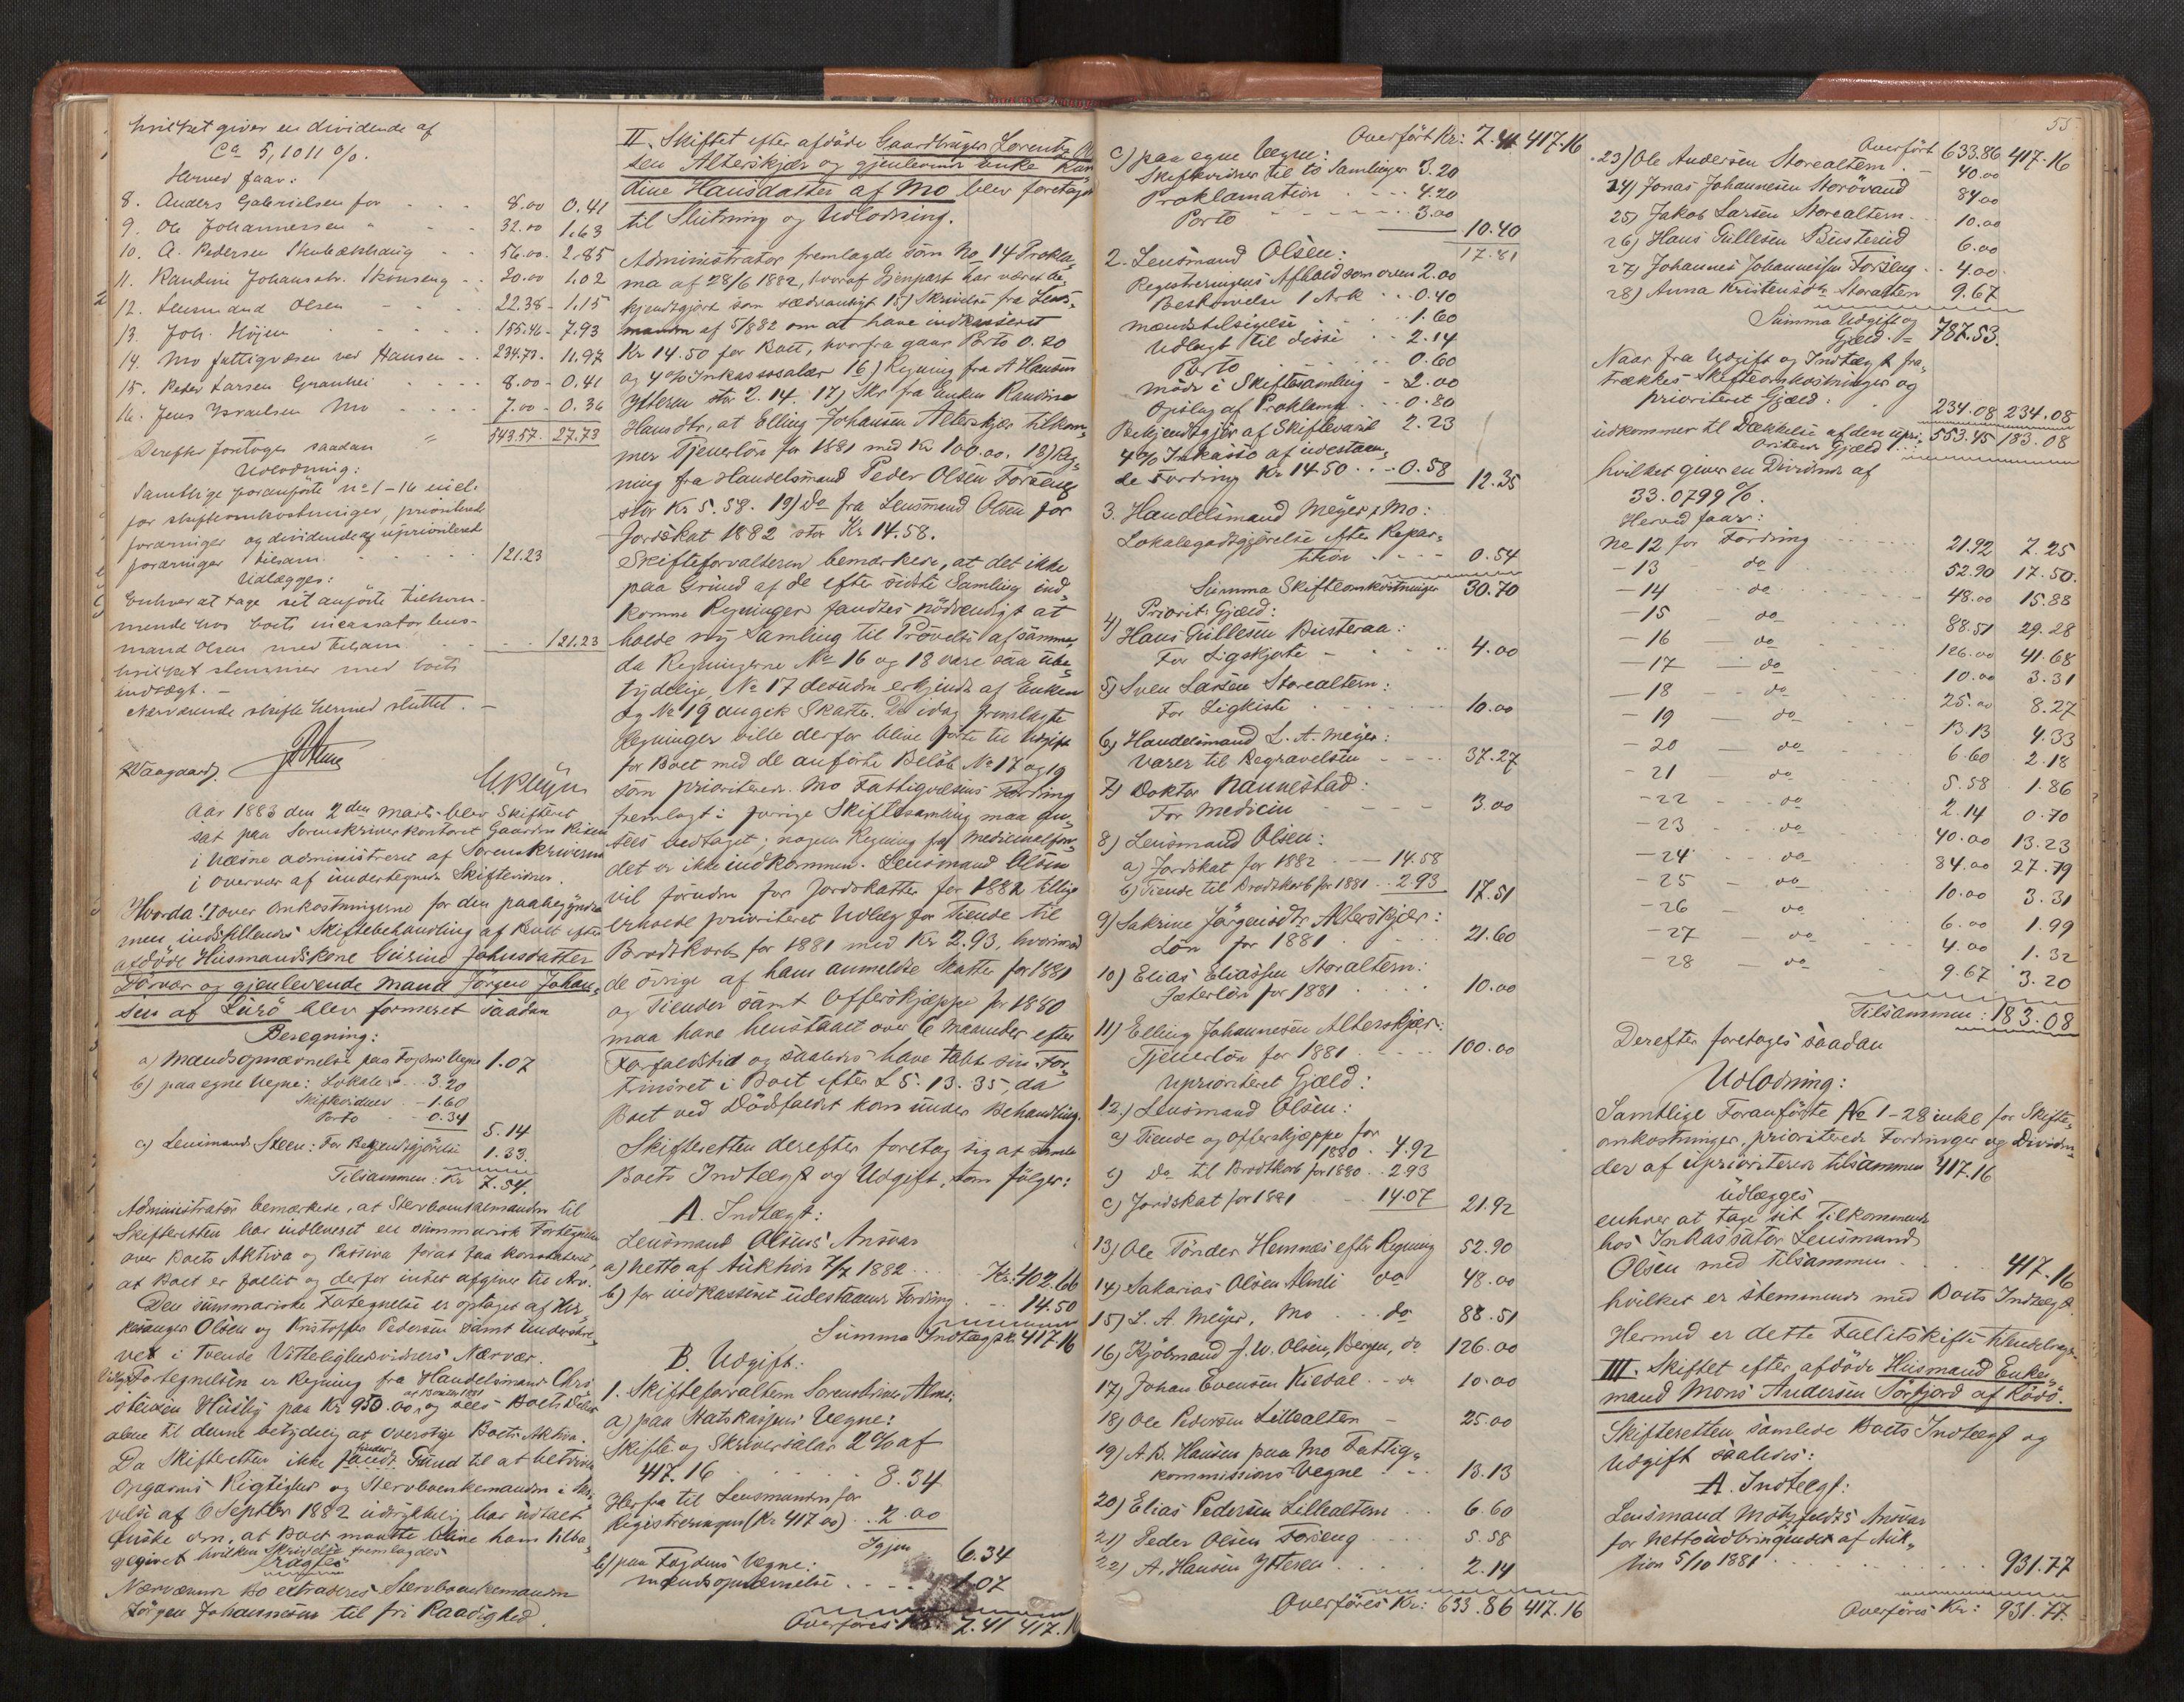 hvilket giver en dividende af
Ca 5,1011 %.
Herved faar:
8. Anders Gabrielsen for 8.00 0.41
9. Ole Johannessen " 32.00 1.63
10. A. Pedersen 56.00 2.85
11. Randine Johansdtr. Skonseng 20.00 1.02
12. Lensmand Olsen 22.38 1.15
13. Joh. Højen 155.46 7.93
14. Mo fattigvæsen ved Hansen 234.73 11.97
15. Peder Larsen Granhei 8.00 0.41
16. Jens Israelsen Mo 7.00 0.36
543.57 27.73
Derefter foretoges saadan
Udlodning:
Samtlige foranførte no 1-16 incl.
for skifteomkostninger, prioriterede
fordringer og dividende af uprioriterede
fordringer tilsam. 121.23
Udlægges:
Enhver at tage sit anførte tilkom-
mende hos boets incassator lens-
mand Olsen med tilsam. 121.23
hvilket stemmer med boets
indtægt. -
Nærværende skifte hermed sluttet. -
Aar 1883 den 2den Marts blev Skifteret
sat paa Sorenskriverkontoret Gaarden
i Næsne administreret af Sorenskriveren
i overvær af undertegnede Skiftevidner.
Hvorda: I over Omkostningerne for den paabegyndte
men indstillende Skiftebehandling af Boet efter
afdøde Husmandskone Gurine Johnsdatter
og gjenlevende mand Jørgen Johan-
sen af Lurö blev formeret saadan
Beregning:
a) Mandsopnævnelse paa Fogdens Vegne 1.07
b) paa egne Vegne: Lokale 3.20
Skiftevidner 1.60
Porto 0.34
5.14
c) Lensmand Steen: For Bekjendtgjörelse 1.33.
Tilsammen: Kr 7.54.
Administrator bemærkede, at Stervboenkemanden til
Skifteretten har indleveret en summarisk Fortegnelse
over Boets Aktiva og Passiva hvoraf kan konstateres,
at Boet er fallit og derfor intet afgiver til Arv.
Den summariske Fortegnelse er optaget af
Olsen og Kristoffer Pedersen samt underskre-
vet i tvende Vitterlighedsvidners Nærvær.
Fortegnelsen er Regning fra Handelsmand Chri
stensen Husby paa Kr 950.00, og sees Boets
alene til denne betydelig at overstige Boets Aktiva.
Da Skifteretten ikke finder Grund til at betvivle
Opgavens Rigtighed og Stervboenkemanden i Skri
velse af 6 Septbr 1882 udtrykkelig har udtalt
Ønske om, at Boet maatte blive ham tilba-
gegivet hvilken Skrivelse fremlagdes
Nærværende Bo extraderes Stervboenkemanden
Jørgen Johannesen til fri Raadighed.
II. Skiftet efter afdöde Gaardbruger Lorentz Ol
sen Alterskjær og gjenlevende enke Ran
dine Hansdatter af Mo blev foretaget
til Slutning og Udlodning.
Administrator fremlagde som No 14 Prokla-
ma af 28/6 1882, hvoraf Gjenpart har været be-
kjendtgjort som sædvanligt 15) Skrivelse fra Lens-
manden af 5/882 om at have indkasseret
Kr 14.50 for Boet, hvorfra gaar Porto 0.20
og 4% Inkassosalær 16) Regning fra A Hansen
Ytteren stor 2.14. 17) Skr fra Enken Randine
Hansdtr, at Elling Johansen Alterskjær tilkom-
mer Tjenerlön for 1881 med Kr 100.00. 18) Reg-
ning fra Handelsmand Peder Olsen Forseng
stor Kr 5.58. 19) Do fra Lensmand Olsen for
Jordskat 1882 stor Kr 14.58.
Skifteforvalteren bemærkede, at det ikke
paa Grund af de efter sidste Samling ind-
komne Regninger fandtes nödvendigt at
holde ny Samling til Prövelse af samme,
da Regningerne No 16 og 18 vare saa ube-
tydelige, No 17 desuden erkjendt af Enken
og No 19 angik Skatter. De idag fremlagte
Regninger ville derfor blive förte til Udgift
for Boet med de anförte Belöb No 17 og 19
som prioriterede. Mo Fattigvæsens Fordring
fremlagt i forrige Skiftesamling maa an-
sees vedtaget; nogen Regning fra Medicinalfon-
det er ikke indkommen. Lensmand Olsen
vil foruden for Jordskatten for 1882 tillige
erholde prioriteret Udlæg for Tiende til
Brodtkorb for 1881 med Kr 2.93, hvorimod
de övrige af ham anmeldte Skatter for 1881
og Tiender samt Offerskjæppe for 1880
maa have henstaaet over 6 Maaneder efter
Forfaldstid og saaledes have tabt sin For-
trinsret i Boet efter L 5.13.35, da
Boet ved Dödsfaldet kom under Behandling.
Skifteretten derefter foretog sig at samle
Boets Indtægt og Udgift, som fölger:
A. Indtægt:
Lensmand Olsens' Ansvar
a) netto af Auktion 7/7 1882 Kr: 402.66
b) for indkasseret udestaaende Fordring 14.50
Summa Indtægt Kr 417.16
B. Udgift:
1. Skifteforvalteren Sorenskriver
a) paa Statskassens Vegne:
Skifte og Skriversalær 2% af
417.16 8.34
Herfra til Lensmanden for
Registreringen (Kr 417 00) 2.00
Igjen 6.34
b) paa Fogdens Vegne:
mandsopnævnelse 1.07
Overföres Kr: 7.41 417.16
Overført Kr: 7.41 417.16
c) paa egne Vegne:
Skiftevidner til to Samlinger 3.20
Proklamation 4.20
Porto 3.00
10.40
17.81
2. Lensmand Olsen:
Registreringens Afhold som oven 2.00
Beskrivelse 1 Ark 0.40
mændstilsigelse 1.60
Udlagt til disse 2.14
Porto 0.60
möde i Skiftesamling 2.00
Opslag af Proklama 0.80
Bekjendtgjör af Skiftevarsl 2.23
4% Inkasso af udestaaen-
de Fordring Kr 14.50 0.58
12.35
3. Handelsmand Meyer, Mo:
Lokalegodtgjörelse efter Repar-
tition 0.54
Summa Skifteomkostninger 30.70
Priorit. Gjæld:
4) Hans Gullesen Busteraa:
For Ligskjorte 4.00
5) Sven Larsen Storealtern:
For Ligkiste 10.00
6) Handelsmand L. A. Meyer:
Varer til Begravelsen 37.27
7) Doktor Nannestad:
For Medicin 3.00
8) Lensmand Olsen:
a) Jordskat for 1882 14.58
b) Tiende til Brodtkorb for 1881 2.93
17.51
9) Sakrine Jörgensdtr Alterskjær:
Lön for 1881 21.60
10) Elias Eliassen Storaltern:
Gjæterlön for 1881 10.00
11) Elling Johannesen Alterskjær:
Tjenerlön for 1881 100.00
Uprioriteret Gjæld:
12.) Lensmand Olsen:
a) Tiende og Offerskjæppe for
1880 4.92
b) Do til Brodtkorb for 1880 2.93
c) Jordskat for 1881 14.07
21.92
13) Ole Tönder Hemnes efter Regning 52.90
14) Sakarias Olsen do 48.00
15) L. A. Meyer, Mo do 88.51
16) Kjöbmand J. W. Olsen, Bergen, do 126.00
17) Johan Evensen Kildal do 10.00
18) Ole Pedersen Lillealtern 25.00
19) A. B. Hansen paa Mo Fattig-
kommissions Vegne 13.13
20) Elias Pedersen Lillealtern 6.60
21) Peder Olsen Forseng 5.58
22) A. Hansen Ytteren 2.14
Overföres Kr: 633.86 417.16
55
Overfört 633.86 417.16
23) Ole Andersen Storealtern 40.00
24) Jonas Johannesen Storövand 84.00
25) Jakob Larsen Storealtern 10.00
26) Hans Gullesen Busterud 6.00
27) Johannes Johannessen Forseng 4.00
28) Anna Kristensdtr Storaltern 9.67
Summa Udgift og
Gjæld = 787.53.
Naar fra Udgift og Indtægt fra-
trækkes Skifteomkostninger og
prioriteret Gjæld: 234.08 234.08
udkommer til Dækkelse af den upri-
oriterede Gjæld 553.45 183.08
hvilket giver en Dividende af
33.0799 %.
Herved faaer:
No 12 for Fordring 21.92 7.25
- 13 - do 52.90 17.50.
- 14 - do 48.00 15.88
- 15 - do 88.51 29.28
- 16 - do 126.00 41.68
- 17 - do 10.00 3.31
- 18 - do 25.00 8.27
- 19 - do 13.13 4.33
- 20 - do 6.60 2.18
- 21 - do 5.58 1.86
- 22 - do 2.14 0.70
- 23 - do 40.00 13.23
- 24 - do 84.00 27.79
- 25 - do 10.00 3.31
- 26 - do 6.00 1.99
- 27 - do 4.00 1.32
- 28 - do 9.67 3.20
Tilsammen: 183.08
Derefter foretoges saadan
Udlodning:
Samtlige Foranförte No 1-28 inkl for Skifte-
omkostninger, prioriterede Fordringer og Dividen-
der af uprioriterede tilsammen 417.16
udlægges
enhver at tage sit Tilkommende
hos Inkassator Lensmand
Olsen med tilsammen 417.16
hvilket er stemmende med Boets Indtægt.
Hermed er dette Fallitskifte tilendebragt.
III. Skiftet efter afdöde Husmand Enke-
mand Mons Andersen Sörfjord af Rödö.
Skifteretten samlede Boets Indtægt og
Udgift saaledes:
A. Indtægt:
Lensmand Motzfeldts Ansvar
for Nettoudbringendet af Auk-
tion 5/10 1881 931.77
Overföres Kr: 931.77.